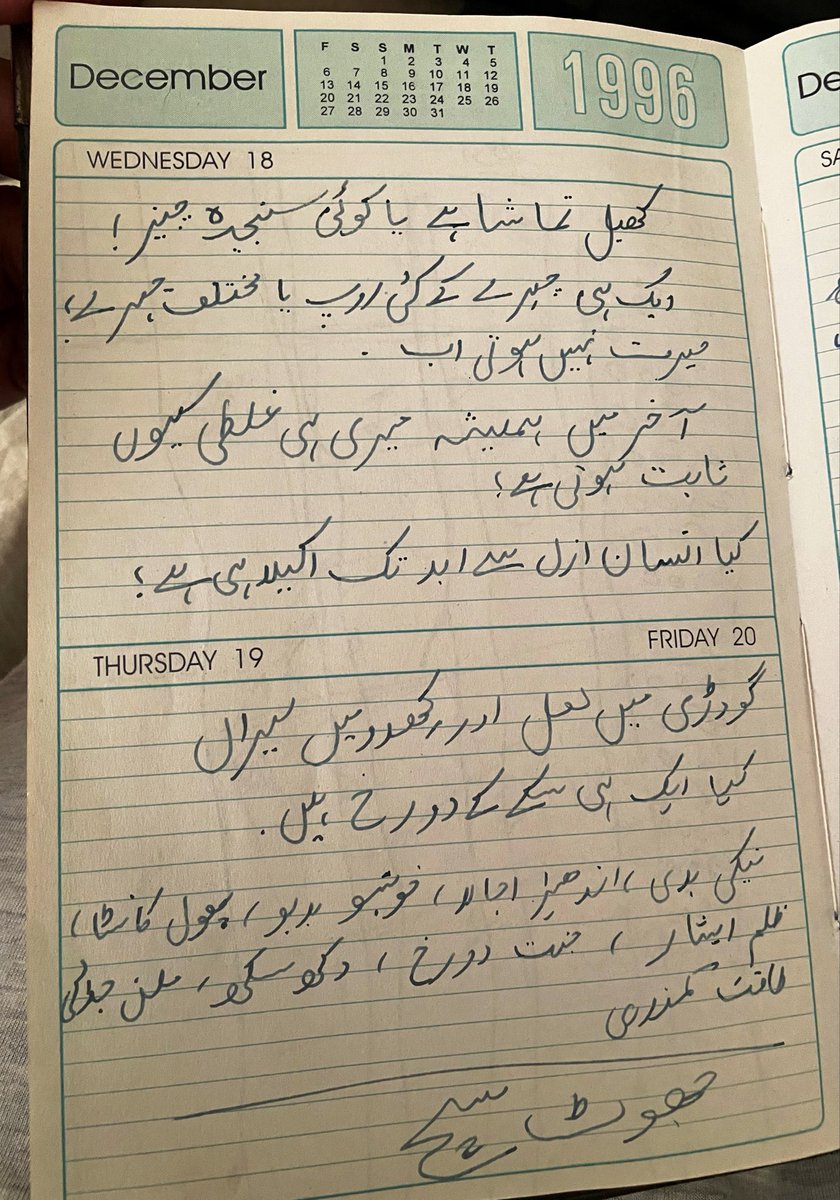 December
F S S M T W T
1 2 3 4 5
6 7 8 9 10 11 12
13 14 15 16 17 18 19
20 21 22 23 24 25 26
27 28 29 30 31
1996
WEDNESDAY 18
کھیل تماشا ہے یا کوئی سنجیدہ چیز!
ایک ہی چہرے کے کئی روپ یا مختلف چہرے،
حیرت نہیں ہوتی اب.
آخر میں ہمیشہ میری ہی غلطی کیوں
ثابت ہوتی ہے؟
کیا انسان ازل سے ابد تک اکیلا ہی ہے؟
THURSDAY 19
FRIDAY 20
گودڑی میں لعل اور میں
کیا ایک ہی سکے کے دو رخ ہیں.
نیکی بدی، اندھیرا اجالا، خوشبو بدبو، پھول کانٹا،
ظلم ایثار، جنت دوزخ، دکھ سکھ، ملن جدائی
طاقت کمزوری
جھوٹ سچ
De
SA